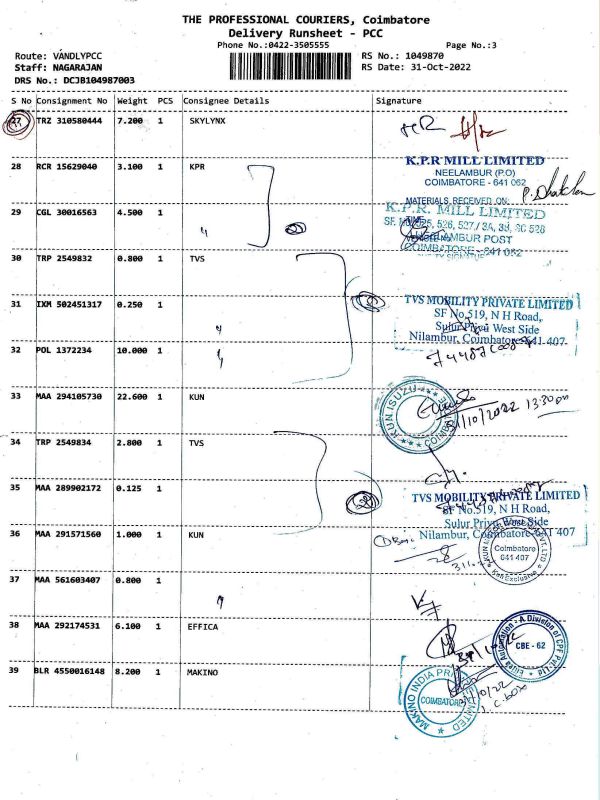 THE PROFESSIONAL COURIERS, Coimbatore
Delivery Runsheet - PCC
Phone No.:0422-3505555 Page No.:3
Route: VANDLYPCC RS No.: 1049870
Staff: NAGARAJAN RS Date: 31-Oct-2022
DRS No.: DCJB104987003
S No Consignment No Weight PCS Consignee Details Signature
27 TRZ 310580444 7.200 1 SKYLYNX
28 RCR 15629040 3.100 1 KPR
K.P.R MILL LIMITED
NEELAMBUR (P.O)
COIMBATORE - 641 062
MATERIALS RECEIVED ON:
29 CGL 30016563 4.500 1
K.P.R. MILL LIMITED
COIMBATORE - 641 062
30 TRP 2549832 0.800 1 TVS
31 IXM 502451317 0.250 1
TVS MOBILITY PRIVATE LIMITED
SF No.519, N H Road,
Sulur Privai West Side
Nilambur, Coimbatore-641 407
32 POL 1372234 10.000 1
33 MAA 294105730 22.600 1 KUN
KUN ISUZU
31/10/2022
34 TRP 2549834 2.800 1 TVS
35 MAA 289902172 0.125 1
TVS MOBILITY PRIVATE LIMITED
SF No.519, N H Road,
Nilambur, Coimbatore-641 407
36 MAA 291571560 1.000 1 KUN
Coimbatore
641 407
37 MAA 561603407 0.800 1
38 MAA 292174531 6.100 1 EFFICA
Effica Automation - A Division of CPF Pvt. Ltd
CBE - 62
39 BLR 4550016148 8.200 1 MAKINO
MAKINO INDIA PRIVATE LIMITED
COIMBATORE